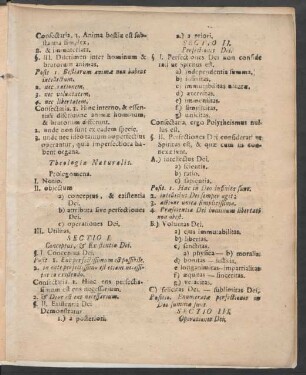 Consectaria. 1. Anima bestiæ est sub-
stantia simplex,
2. & immaterialis.
§. III. Discrimen inter hominum &
brutorum animas.
Posit. 1. Bestiarum animæ non habent
intellectum,
2. nec rationem,
3. nec voluntatem,
4. nec libertatem.
Consectaria. 1. Hinc interno, & essen-
tiali discrimine animæ hominum
& brutorum differunt.
2. unde non sunt ex eadem specie.
3. unde nec hominum operationes ex-
ercerent, quamvis imperfectiora ha-
bent organa.
Theologia Naturalis.
Prolegomena.
I. Notio.
II. objectum
a) conceptus, & existentia
Dei.
b) attributa sive perfectiones
Dei.
c) operationes Dei.
III. Utilitas.
SECTIO I.
Conceptus, & Existentia Dei.
§. I. Conceptus Dei.
Posit. 1. Ens perfectissimum est possibile.
2. in note perfectissimi est etiam neces-
saria existendi.
Consectaria 1. Hinc ens perfectis-
simum est ens necessarium.
2. & Deus est ens necessarium.
§. II. Existentia Dei
Demonstratur
1.) a posteriori.
2.) a priori.
SECTIO II.
Perfectiones Dei.
§ I. Perfectiones Dei non conside-
rati ut spiritus est.
a) independentia summa,
b) infinitas,
c) immutabilitas
d) æternitas,
e) immensitas,
f) simplicitas,
g) unitas.
Consectaria. ergo Polytheismus nul-
lus est.
§ II. Perfectiones Dei considerati ut
spiritus est, & quæ cum iis con-
nexæ sunt.
A.) intellectus Dei,
a) scientia,
b) ratio,
c) sapientia.
Posit. 1. Hæc in Deo infinita sunt.
2. intellectus Dei semper agit;
3. actione unica simplicissima.
4. Præscientia Dei hominum libertati
non obest.
B.) Voluntas Dei,
a) ejus immutabilitas,
b) libertas,
c) sanctitas,
α) physica — b) moralis:
d) bonitas — justitia,
e) longanimitas-imperialitas
f) æquitas — sinceritas,
g) sanctitas.
C) felicitas Dei, — sublimitas Dei,
Positio. Enumeratæ perfectiones in
Deo summæ sunt.
SECTIO III.
Operationes Dei.